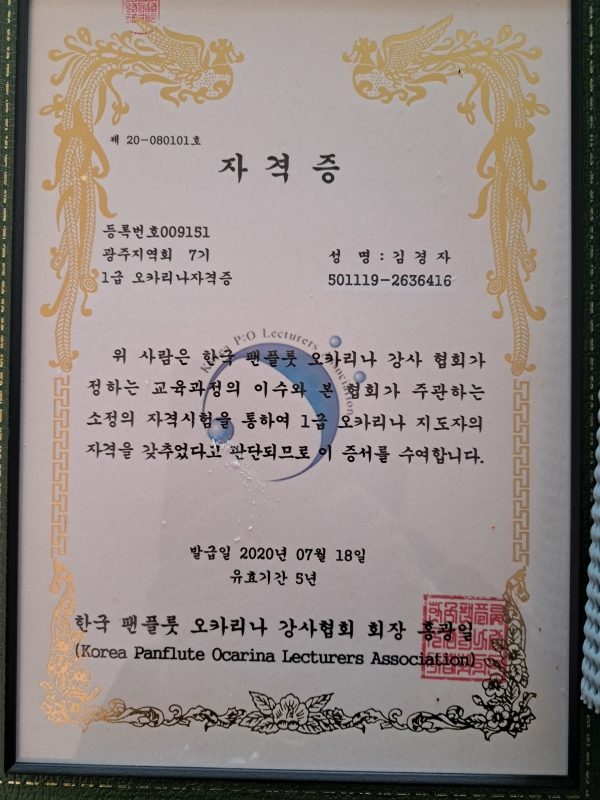 제 20-080101호
자격증
등록번호009151
광주지역회 7기
1급 오카리나자격증
성 명 : 김경자
501119-2636416
Korea P.O Lecturers Association
위 사람은 한국 팬플룻 오카리나 강사 협회가
정하는 교육과정의 이수와 본 협회가 주관하는
소정의 자격시험을 통하여 1급 오카리나 지도자의
자격을 갖추었다고 판단되므로 이 증서를 수여합니다.
발급일 2020년 07월 18일
유효기간 5년
한국 팬플룻 오카리나 강사협회 회장 홍광일
(Korea Panflute Ocarina Lecturers Association)